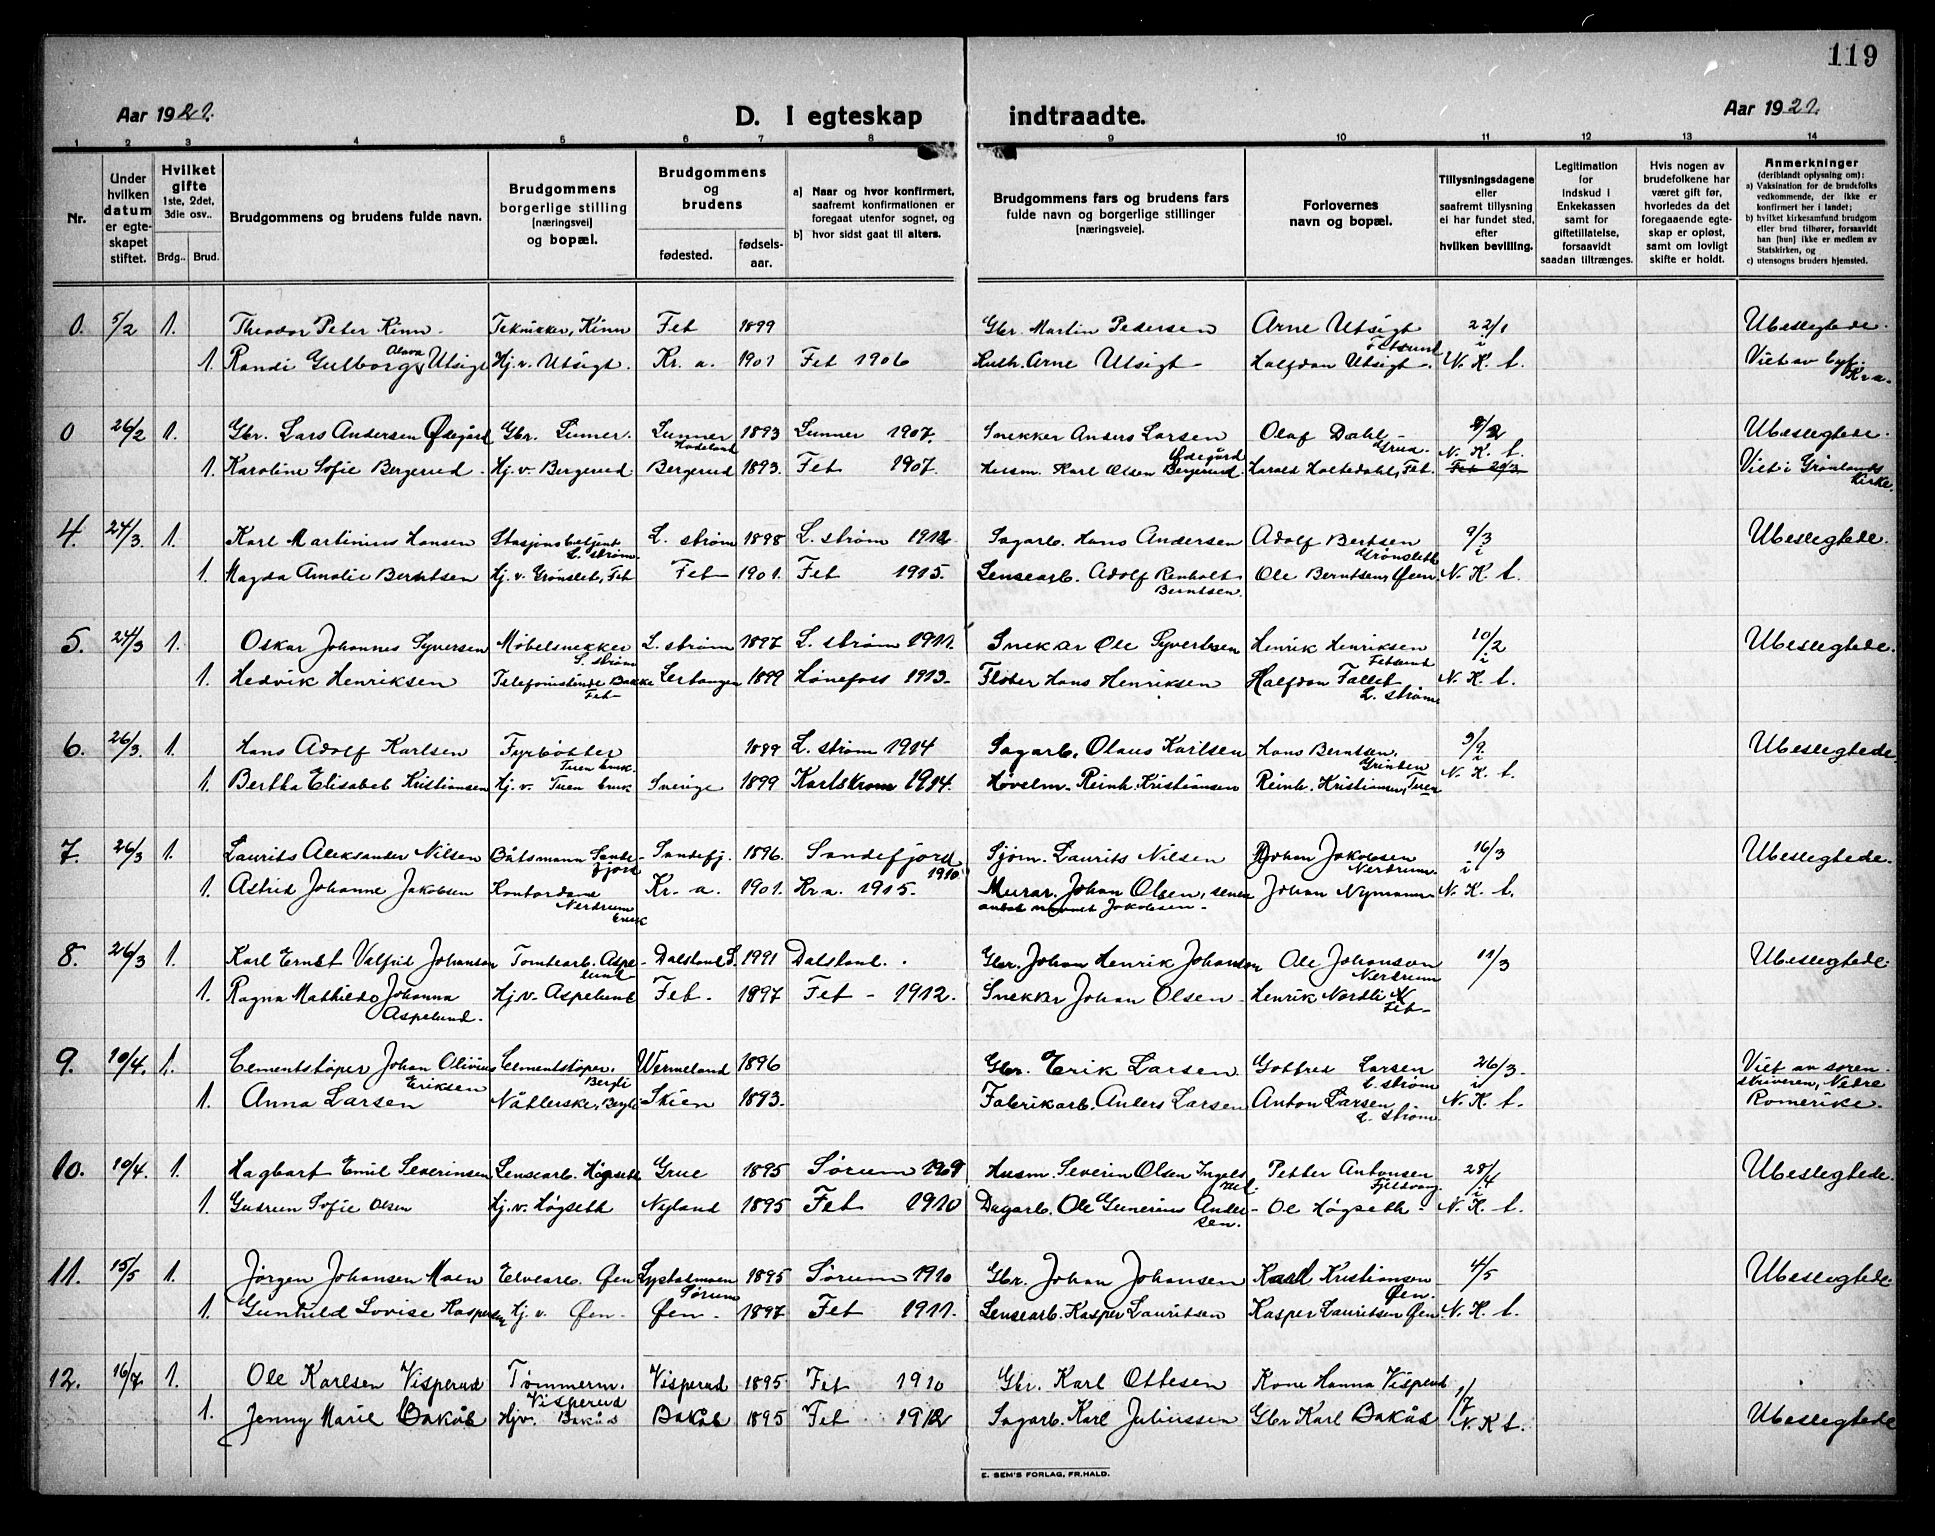 119
Aar 1921. D. I egteskap indtraadte. Aar 1921.
1 2 3 4 5 6 7 8 9 10 11 12 13 14
Nr.
Under hvilken datum er egteskapet stiftet.
Hvilket gifte 1ste, 2det, 3die osv..
Brdg.. Brud.
Brudgommens og brudens fulde navn.
Brudgommens borgerlige stilling [næringsvei] og bopæl.
Brudgommens og brudens
fødested. fødselsaar.
a) Naar og hvor konfirmert, saafremt konfirmationen er foregaat utenfor sognet, og
b) hvor sidst gaat til alters.
Brudgommens fars og brudens fars fulde navn og borgerlige stillinger [næringsveie].
Forlovernes navn og bopæl.
Tillysningsdagene eller saafremt tillysning ei har fundet sted, efter hvilken bevilling.
Legitimation for indskud i Enkekassen samt for giftetillatelse, forsaavidt saadan tiltrænges.
Hvis nogen av brudefolkene har været gift før, hvorledes da det foregaaende egteskap er opløst, samt om lovligt skifte er holdt.
Anmerkninger (deriblandt oplysning om):
a) Vaksination for de brudefolks vedkommende, der ikke er konfirmert her i landet;
b) hvilket kirkesamfund brudgom eller brud tilhører, forsaavidt han [hun] ikke er medlem av Statskirken, og
c) utensogns bruders hjemsted.
0. 5/2 1. Theodor Peter Kinn. Tekniker, Kinn Fet 1899 Gbr. Martin Pedersen Arne Utsigt Fetsund 22/1 i Ubeslegtede.
1. Randi Gulborg Olava Utsigt Hj. v. Utsigt. Kr. a. 1901 Fet 1906 Arne Utsigt Halfdan Utsigt. N. K. t. Viet av byf. Kra.
0 26/2 1. Gbr. Lars Andersen Ødegård Gbr. Lunner. Lunner Hadeland 1893 Lunner 1907. Snekker Anders Larsen Ødegård Olaf Dahl Grua. N. K. t. Ubeslegtede.
1. Karoline Sofie Bergerud. Hj. v. Bergerud Bergerud 1893. Fet 1907. Husm. Karl Olsen Bergerud. Harald Holtedahl, Fet. Viet i Grønlands Kirke.
4. 24/3. 1. Karl Martinius Hansen Stasjonsbetjent L. strøm L. strøm 1898 L. strøm 1912. Sagarb. Hans Andersen Adolf Bertsen Grønsleth 9/3 i Ubeslegtede.
1. Magda Amalie Berntsen Hj. v. Grønslet, Fet Fet 1901. Fet 1915. Lensearb. Adolf Renholt Berntsen. Ole Berntsen, Øien. N. K. t.
5. 24/3 1. Oskar Johannes Syversen Møbelsnekker L. strøm L. strøm 1897 L. strøm 1911. Snekker Ole Syvertsen Henrik Henriksen Fetsund 10/2 i Ubeslegtede.
1. Hedvik Henriksen Telefonistinde Bakke Fet Lertangen 1899 Hønefoss 1913. Fløter Hans Henriksen Halfdan Fallet L. strøm N. K. t.
6. 26/3. 1. Hans Adolf Karlsen Fyrbøtter Tuen bruk. 1899 L. strøm 1914 Sagarb. Olaus Karlsen Hans Berntsen, Grinden i Ubeslegtede.
1. Bertha Elisabet Kristiansen Hj. v. Tuen bruk Sverige 1899 Karlskrona 1914. Høvelm. Reinh. Kristiansen Reinh. Kristiansen, Tuen N. K. t.
7. 26/3 1. Laurits Aleksander Nilsen Båtsmann Sandefjord Sandefj. 1896. Sandefjord 1910 Sjøm. Laurits Nilsen Johan Jakobsen Nerdrum. 16/3 i Ubeslegtede.
1. Astrid Johanne Jakobsen Kontordame Nerdrum bruk Kr. a. 1901. Kr. a. 1915. Murar. Johan Olsen, senere Jakobsen. Johan Nymann N. K. t.
8. 26/3 1. Karl Ernst Valfrid Johanson Tomtearb. Aspelund Dalsland S. 1991 Dalsland. Gbr. Johan Henrik Johanson Ole Johanson Nerdrum 11/3 Ubeslegtede.
1. Ragna Mathilde Johanna Aspelund. Hj. v. Aspelund Fet. 1897 Fet - 1912. Snekker Johan Olsen Henrik Nordli Fet
9. 10/4. 1. Cementstøper Johan Olivius Eriksen Cementstøper, Bergli Wermeland 1896 Gbr. Erik Larsen Gotfred Larsen L. strøm 26/3. i Viet av sorenskriveren, Nedre Romerike.
1. Anna Larsen Nåtlerske, Bergli Skien 1893. Fabrikarb. Anders Larsen Anton Larsen L. strøm. N. K. t.
10. 10/4. 1. Hagbart Emil Severinsen Lensearb. Høgseth Grue 1895 Sørum 1909 Husm. Severin Olsen Petter Antonsen 28/4 i Ubeslegtede.
1. Gudrun Sofie Olsen Hj. v. Høgseth Nyland 1895 Fet 1910 Dagarb. Ole Gunerius Andersen. Ole Høgseth. N. K. t.
11. 15/5 1. Jørgen Johansen Moen Elvearb. Øen Sørum 1895 Sørum 1910 Gbr. Johan Johansen Karl Kristiansen Øen. 4/5 Ubeslegtede
1. Gunhild Lovise Kaspersen Hj. v. Øen. Øen. 1897 Fet 1911. Lensearb. Kasper Lauritsen Kasper Lauritsen Øen. N. K. t.
12. 16/7. 1. Ole Karlsen Visperud Tømmerm. Visperud Visperud 1895 Fet 1910 Gbr. Karl Ottesen Kone Hanna Visperud 1/7 Ubeslegtede
1. Jenny Marie Bakås Hjv. Bakås Bakås 1895 Fet 1912 Sagarb. Karl Juliussen Gbr Karl Bakås N. K t.
E. SEM'S FORLAG, FR.HALD.